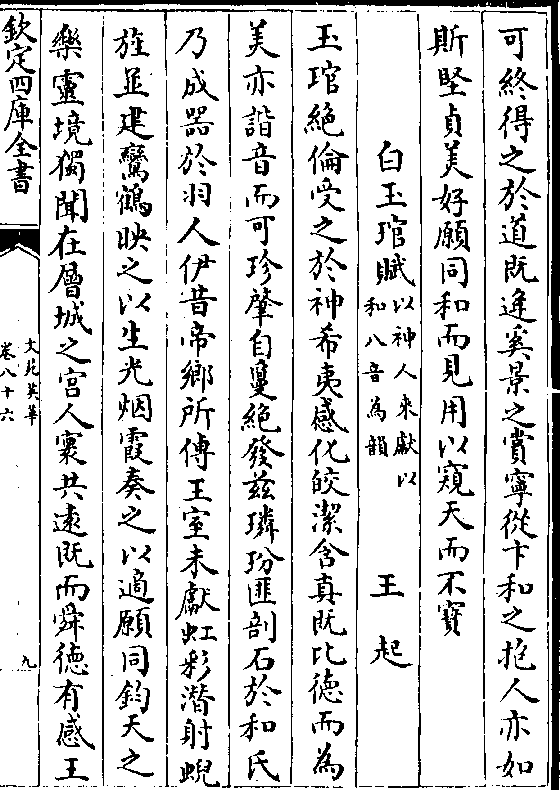 可終得之於道既逆奚景之賞寧從卞和之抱人亦如
斯堅貞美好願同和而見用以窺天而不寳
白玉琯賦以神人來獻以和八音為韻 王起
玉琯絶倫受之於神希夷感化皎潔含真既比德而為
美亦諧音而可珍肇自夐絶發兹璘玢匪剖石於和氏
乃成器於羽人伊昔帝鄉所傳王室未獻虹彩潛射蜺
旌並建鸞鶴映之以生光烟霞奏之以適願同鈞天之
樂靈境獨聞在層城之宫人寰共逺既而舜德有感王
欽定四庫全書
文苑英華
卷八十六
九